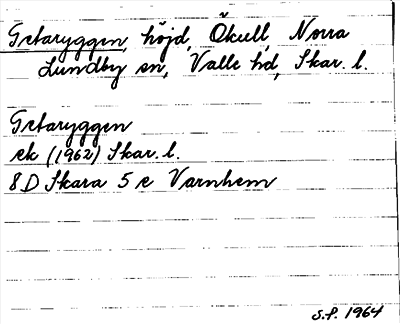 Getaryggen, höjd, Ökull, Norra
Lundby sn, Valle hd, Skar. l.
Getaryggen
ek (1962) Skar. l.
8D Skara 5 e Varnhem
S.P. 1964